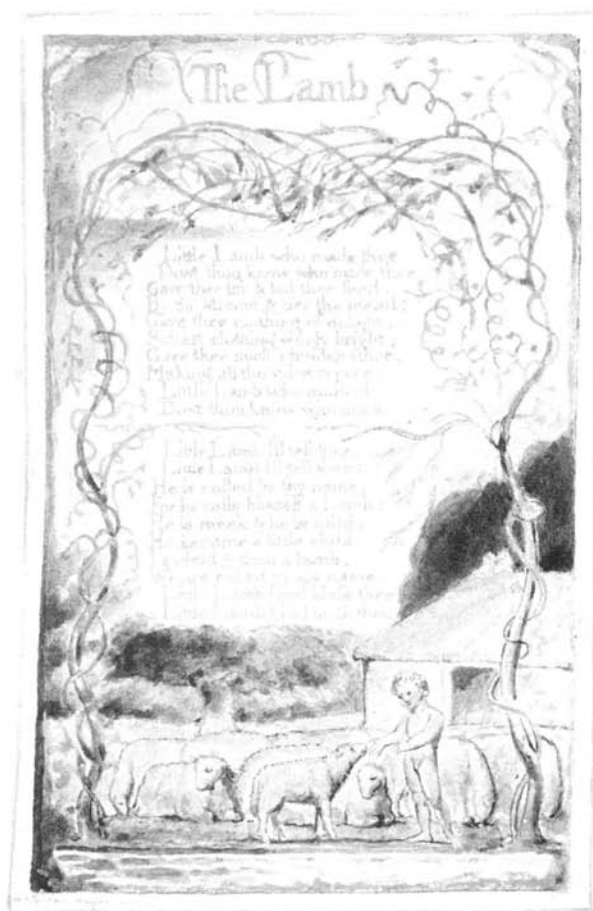 The Lamb
Little Lamb who made thee
Dost thou know who made thee
Gave thee life & bid thee feed
By the stream & o'er the mead;
Gave thee clothing of delight,
Softest clothing wooly bright;
Gave thee such a tender voice,
Making all the vales rejoice:
Little Lamb who made thee
Dost thou know who made thee
Little Lamb I'll tell thee,
Little Lamb I'll tell thee;
He is called by thy name,
For he calls himself a Lamb:
He is meek & he is mild,
He became a little child:
I a child & thou a lamb,
We are called by his name.
Little Lamb God bless thee
Little Lamb God bless thee